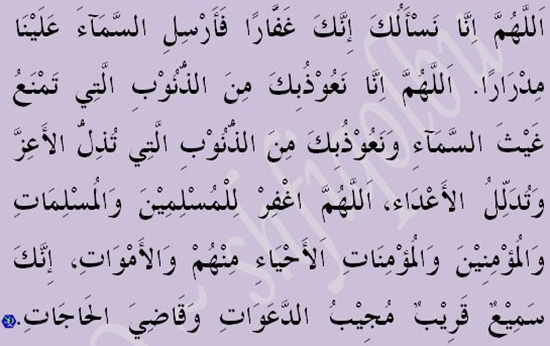 اَللَّهُمَّ اِنَّا نَسْأَلُكَ إِنَّكَ غَفَّارًا فَأَرْسِلِ السَّمَآءَ عَلَيْنَا
مِدْرَارًا. اَللَّهُمَّ اِنَّا نَعُوْذُبِكَ مِنَ الذُّنُوْبِ الَّتِي تَمْنَعُ
غَيْثَ السَّمَآءِ وَنَعُوْذُبِكَ مِنَ الذُّنُوْبِ الَّتِي تُذِلُّ الأَعِزَّ
وَتُدَلِّلُ الأَعْدَاء، اَللَّهُمَّ اغْفِرْ لِلْمُسْلِمِيْنَ وَالْمُسْلِمَاتِ
وَالْمُؤْمِنِيْنَ وَالْمُؤْمِنَاتِ اَلأَحْيَاءِ مِنْهُمْ وَالأَمْوَات، إِنَّكَ
سَمِيْعٌ قَرِيْبٌ مُجِيْبُ الدَّعَوَاتِ وَقَاضِيَ الحَاجَاتِ.